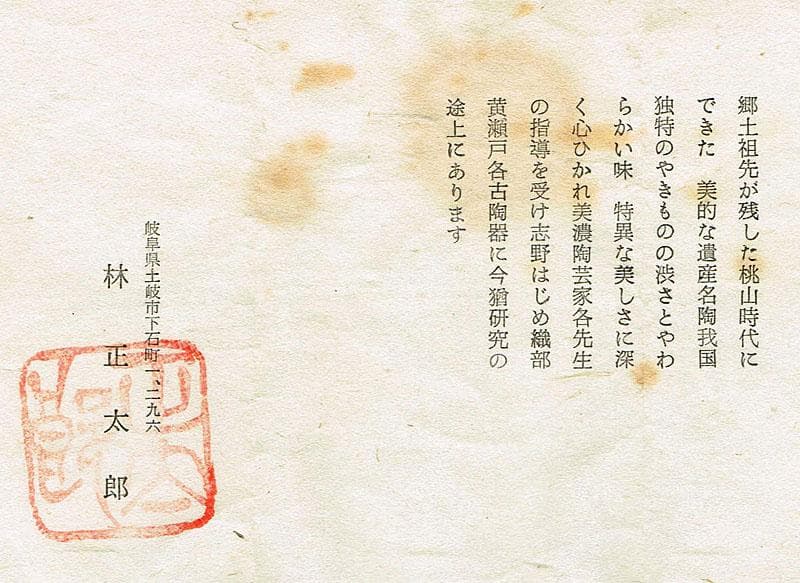 郷土祖先が残した桃山時代に
できた　美的な遺産名陶我国
独特のやきものの渋さとやわ
らかい味　特異な美しさに深
く心ひかれ美濃陶芸家各先生
の指導を受け志野はじめ織部
黄瀬戸各古陶器に今猶研究の
途上にあります
岐阜県土岐市下石町一、二九六
林正太郎